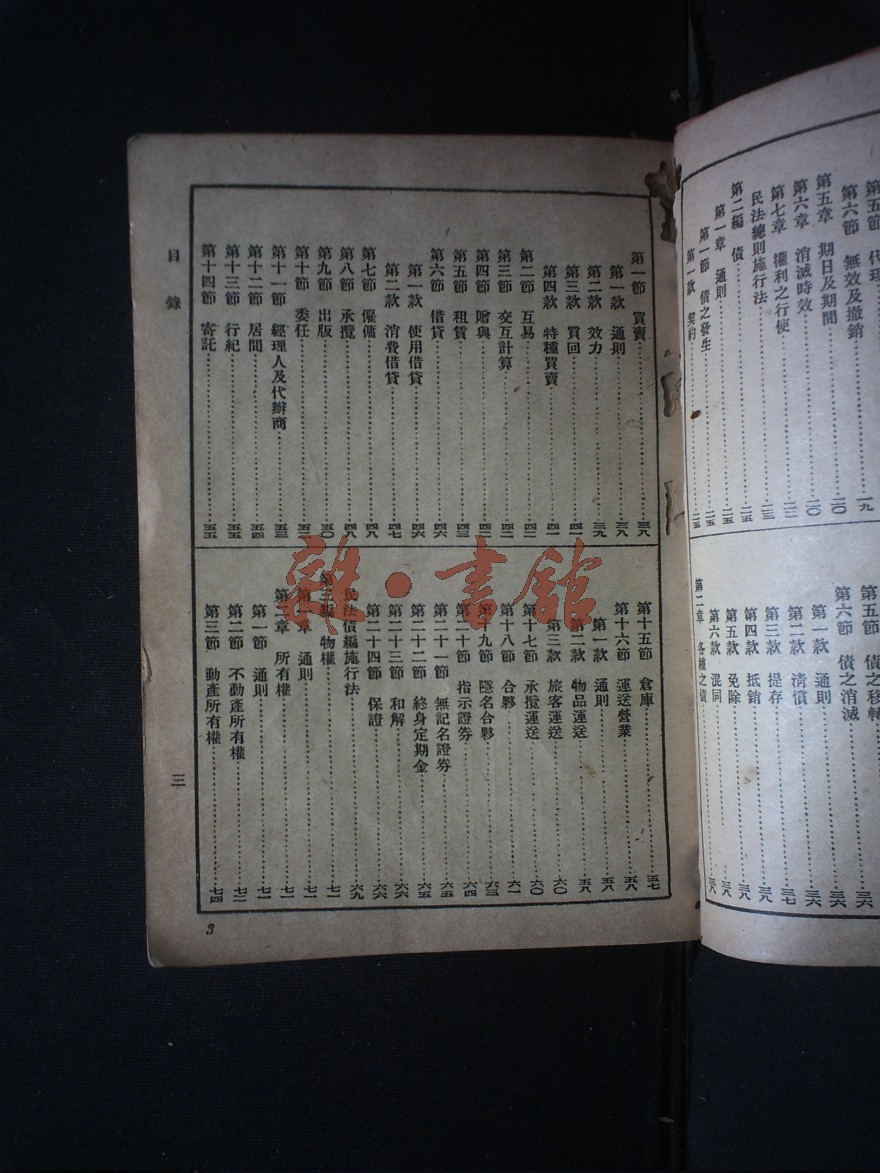 第五節 代理…一九
第六節 無效及撤銷…二〇
第五章 期日及期間…二〇
第六章 消滅時效…二〇
第七章 權利之行使…二二
民法總則施行法…二三
第二編 債…二五
第一章 通則…二五
第一節 債之發生…二五
第一款 契約…二五
第五節 債之移轉…三六
第六節 債之消滅…三六
第一款 通則…三六
第二款 清償…三六
第三款 提存…三七
第四款 抵銷…三八
第五款 免除…三八
第六款 混同…三八
第二章 各種之債…三八
第一節 買賣…三八
第一款 通則…三八
第二款 效力…三九
第三款 買回…四一
第四款 特種買賣…四一
第二節 互易…四二
第三節 交互計算…四二
第四節 贈與…四二
第五節 租賃…四三
第六節 借貸…四六
第一款 使用借貸…四六
第二款 消費借貸…四七
第七節 僱傭…四八
第八節 承攬…四八
第九節 出版…五〇
第十節 委任…五二
第十一節 經理人及代辦商…五三
第十二節 居間…五四
第十三節 行紀…五五
第十四節 寄託…五五
第十五節 倉庫…五七
第十六節 運送營業…五八
第一款 通則…五八
第二款 物品運送…五八
第三款 旅客運送…六〇
第十七節 承攬運送…六〇
第十八節 合夥…六一
第十九節 隱名合夥…六三
第二十節 指示證券…六四
第二十一節 無記名證券…六五
第二十二節 終身定期金…六五
第二十三節 和解…六六
第二十四節 保證…六六
民法債編施行法…六九
第三編 物權…七一
第一章 通則…七一
第二章 所有權…七一
第一節 通則…七一
第二節 不動產所有權…七二
第三節 動產所有權…七四
目錄
三
3
雜·書館